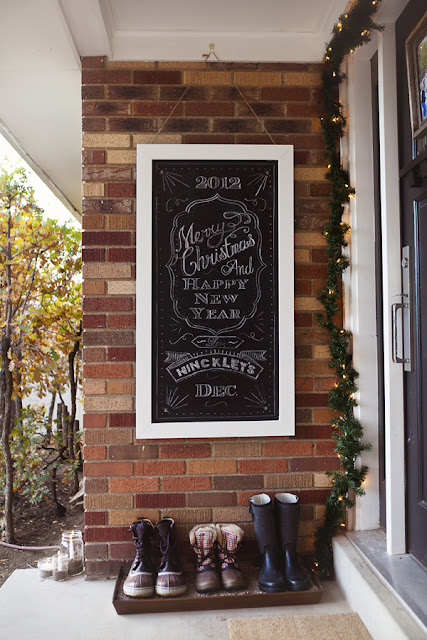 2012
Merry
Christmas
And
HAPPY
NEW
YEAR
The
HINCKLEY'S
DEC.